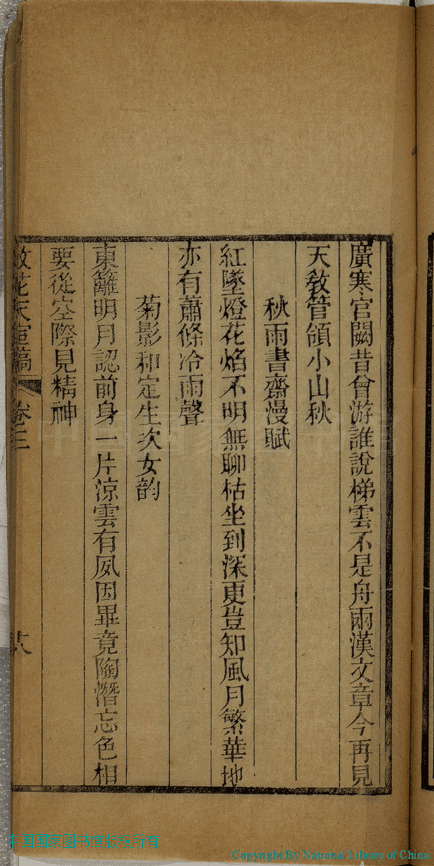 廣寒官闕昔曾游誰說梯雲不是舟兩漢文章今再見
天敎管領小山秋
秋雨書齋漫賦
紅墜燈花焰不明無聊枯坐到深更豈知風月繁華地
亦有蕭條冷雨聲
菊影和定生次女韵
東籬明月認前身一片涼雲有夙因畢竟陶潛忘色相
要從空際見精神
花天室稿 卷三 十八
Copyright By National Library of China